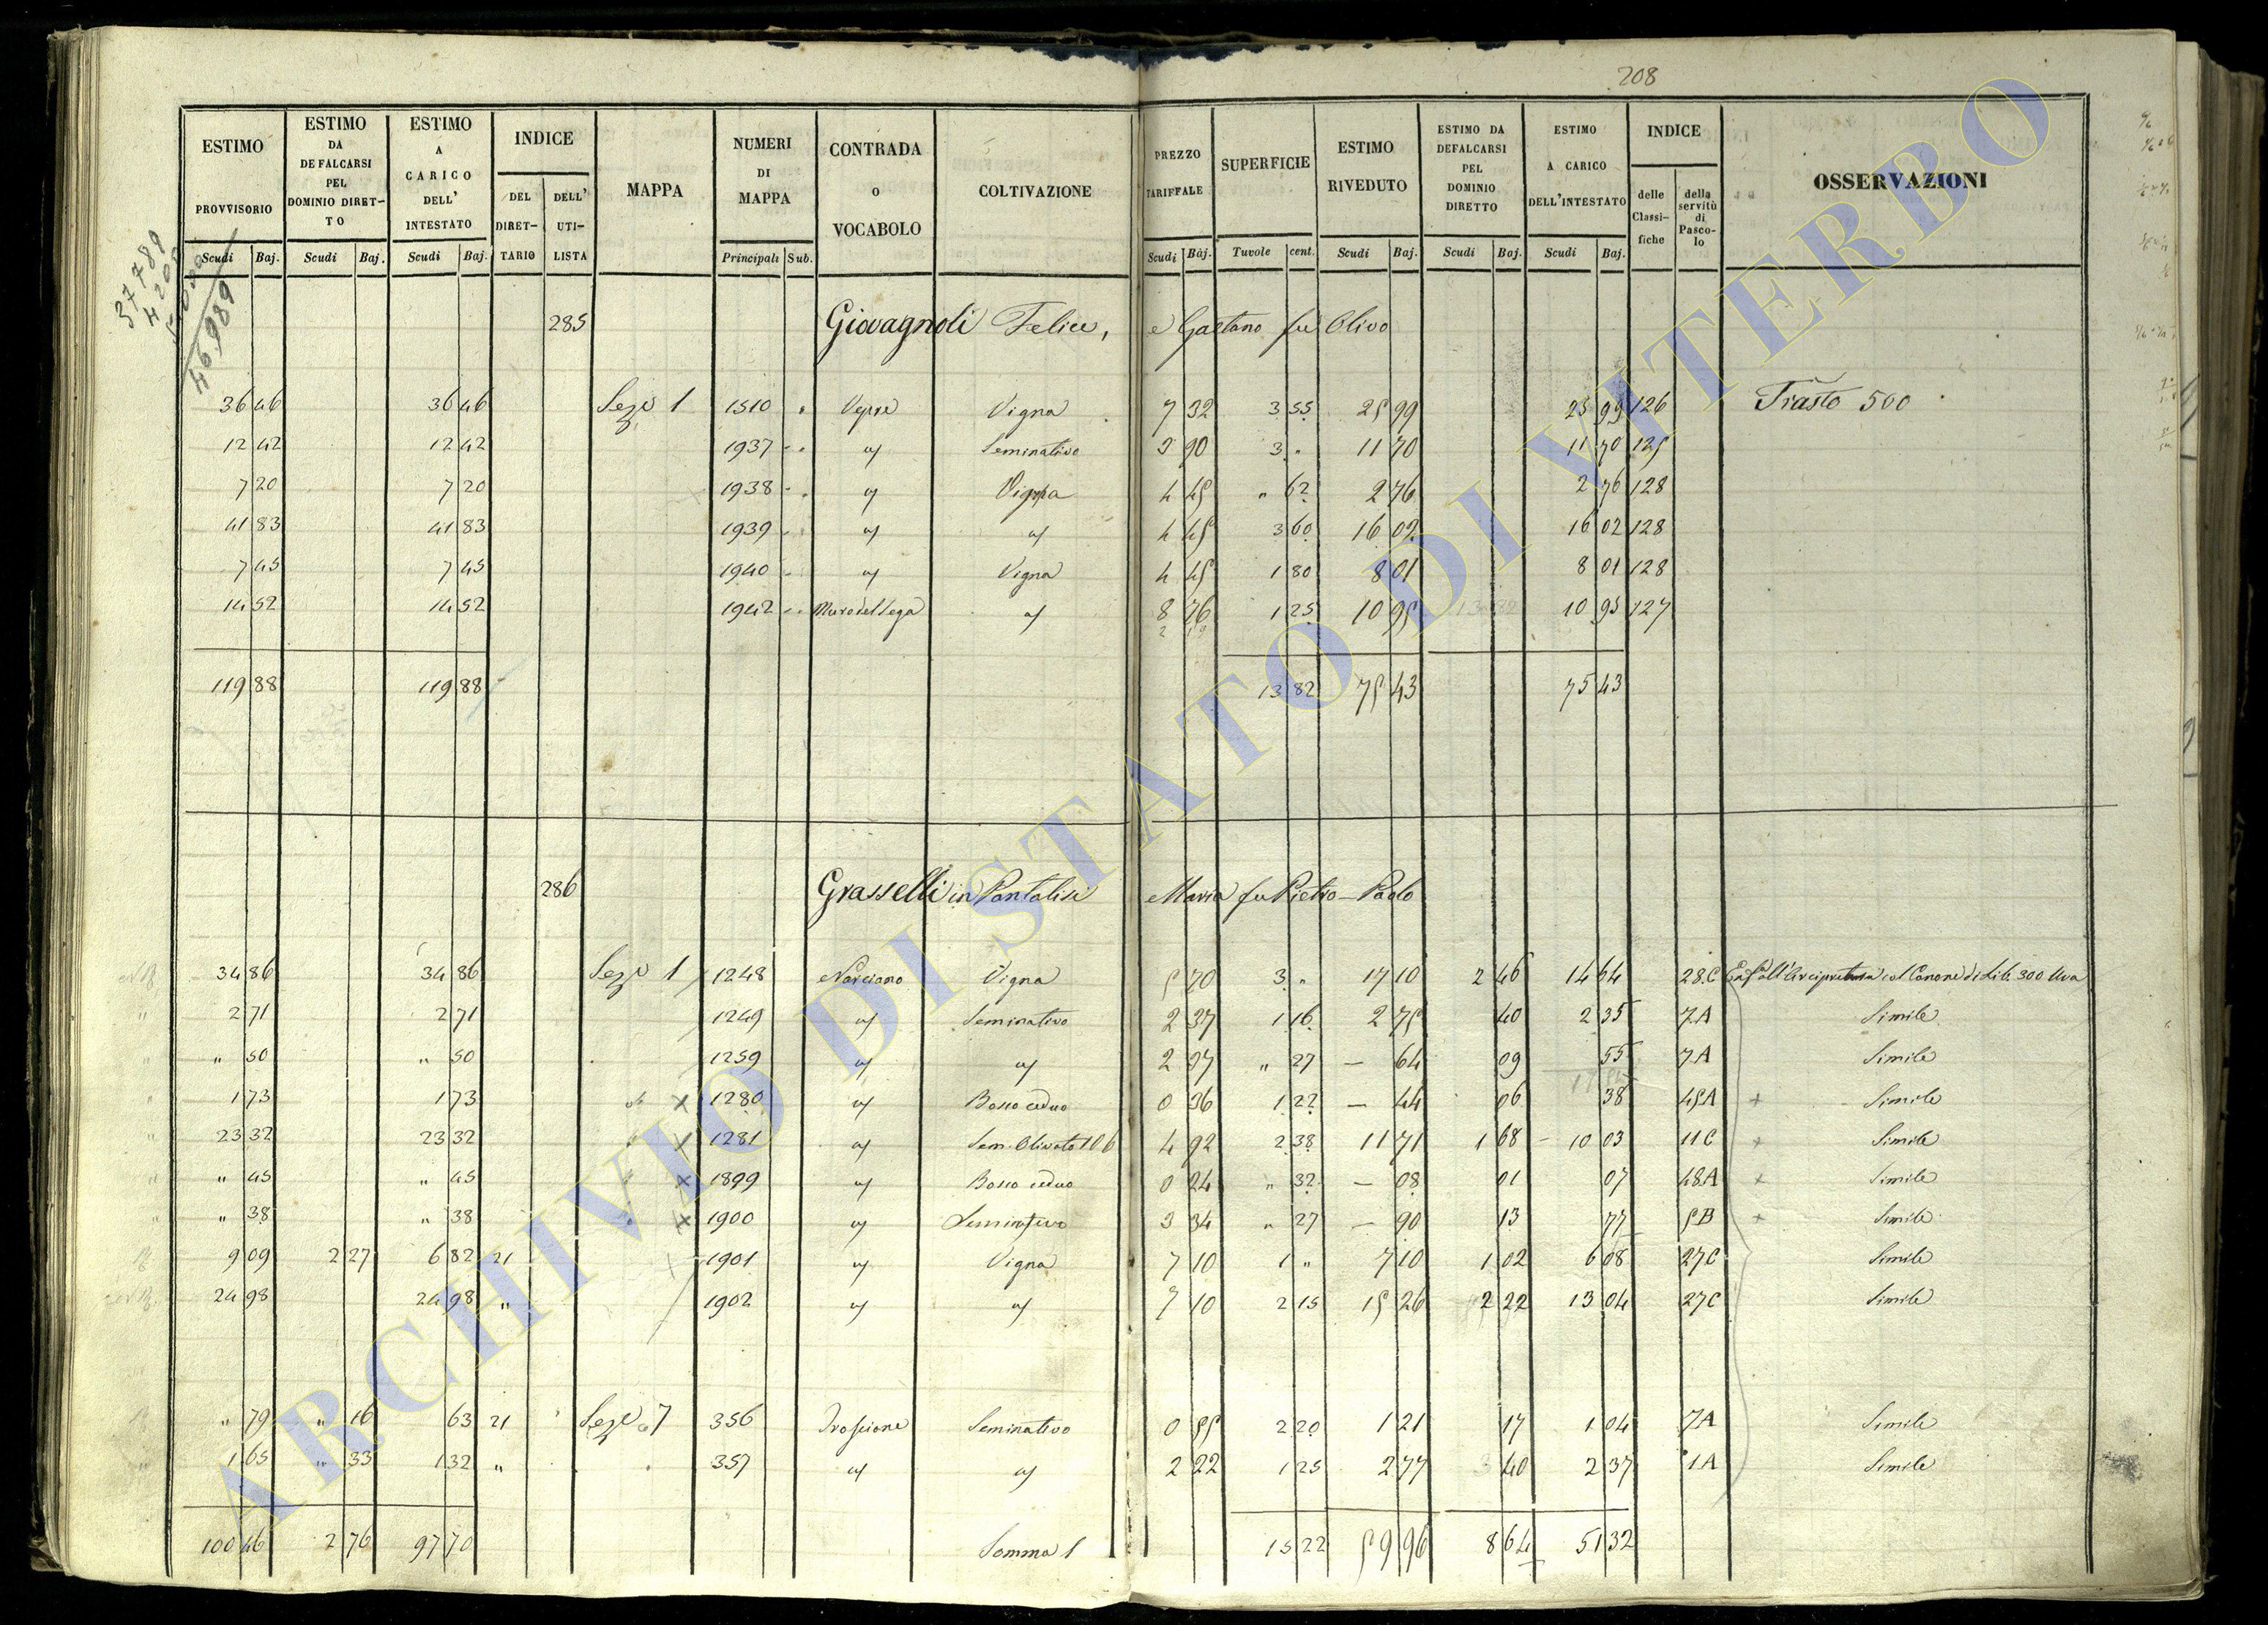 208
ESTIMO PROVVISORIO Scudi Baj. ESTIMO DA DEFALCARSI PEL DOMINIO DIRETTO Scudi Baj. ESTIMO A CARICO DELL' INTESTATO Scudi Baj. INDICE DEL DIRETTARIO DELL' UTILISTA MAPPA NUMERI DI MAPPA Principali Sub. CONTRADA o VOCABOLO COLTIVAZIONE PREZZO TARIFFALE Scudi Baj. SUPERFICIE Tavole cent. ESTIMO RIVEDUTO Scudi Baj. ESTIMO DA DEFALCARSI PEL DOMINIO DIRETTO Scudi Baj. ESTIMO A CARICO DELL'INTESTATO Scudi Baj. INDICE delle Classifiche della servitù di Pascolo OSSERVAZIONI
37789
46989
285 Giovagnoli Felice, e Gaetano fu Olivo
36 46 36 46 Sezе 1 1510 Vepre Vigna 7 32 3 55 25 99 25 99 126 Trasto 500
12 42 12 42 1937 " Seminativo 3 90 3 " 11 70 11 70 125
7 20 7 20 1938 " Vigna 4 45 " 62 2 76 2 76 128
41 83 41 83 1939 " " 4 45 3 60 16 02 16 02 128
7 45 7 45 1940 " Vigna 4 45 1 80 8 01 8 01 128
14 52 14 52 1942 " 8 76 1 25 10 95 10 95 127
119 88 119 88 13 82 75 43 75 43
286 Grasselli in Pantalisi Maria fu Pietro-Paolo
34 86 34 86 Seze 1 1248 Narciano Vigna 5 70 3 " 17 10 2 46 14 64 28.C Enf. all'Arcipretura col Canone di Lib. 300 Uva
2 71 2 71 1249 " Seminativo 2 37 1 16 2 75 40 2 35 7.A Simile
" 50 " 50 1259 " " 2 37 " 27 - 64 09 55 7.A Simile
1 73 1 73 1280 " Bosco ceduo 0 36 1 22 - 44 06 38 45A Simile
23 32 23 32 1281 " Sem. Olivato 106 4 92 2 38 11 71 1 68 10 03 11 C Simile
" 45 " 45 1899 " Bosco ceduo 0 24 " 32 - 08 01 07 48.A Simile
" 38 " 38 1900 " Seminativo 3 34 " 27 - 90 13 77 5 B Simile
9 09 2 27 6 82 21 1901 " Vigna 7 10 1 " 7 10 1 02 6 08 27.C Simile
24 98 24 98 " 1902 " " 7 10 2 15 15 26 2 22 13 04 27 C Simile
" 79 " 16 63 21 Seze 7 356 Seminativo 0 55 2 20 1 21 17 1 04 7.A Simile
1 65 " 33 1 32 " 357 " " 2 22 1 25 2 77 40 2 37 1.A Simile
100 46 2 76 97 70 Somma 15 22 59 96 8 64 51 32
ARCHIVIO DI STATO DI VITERBO